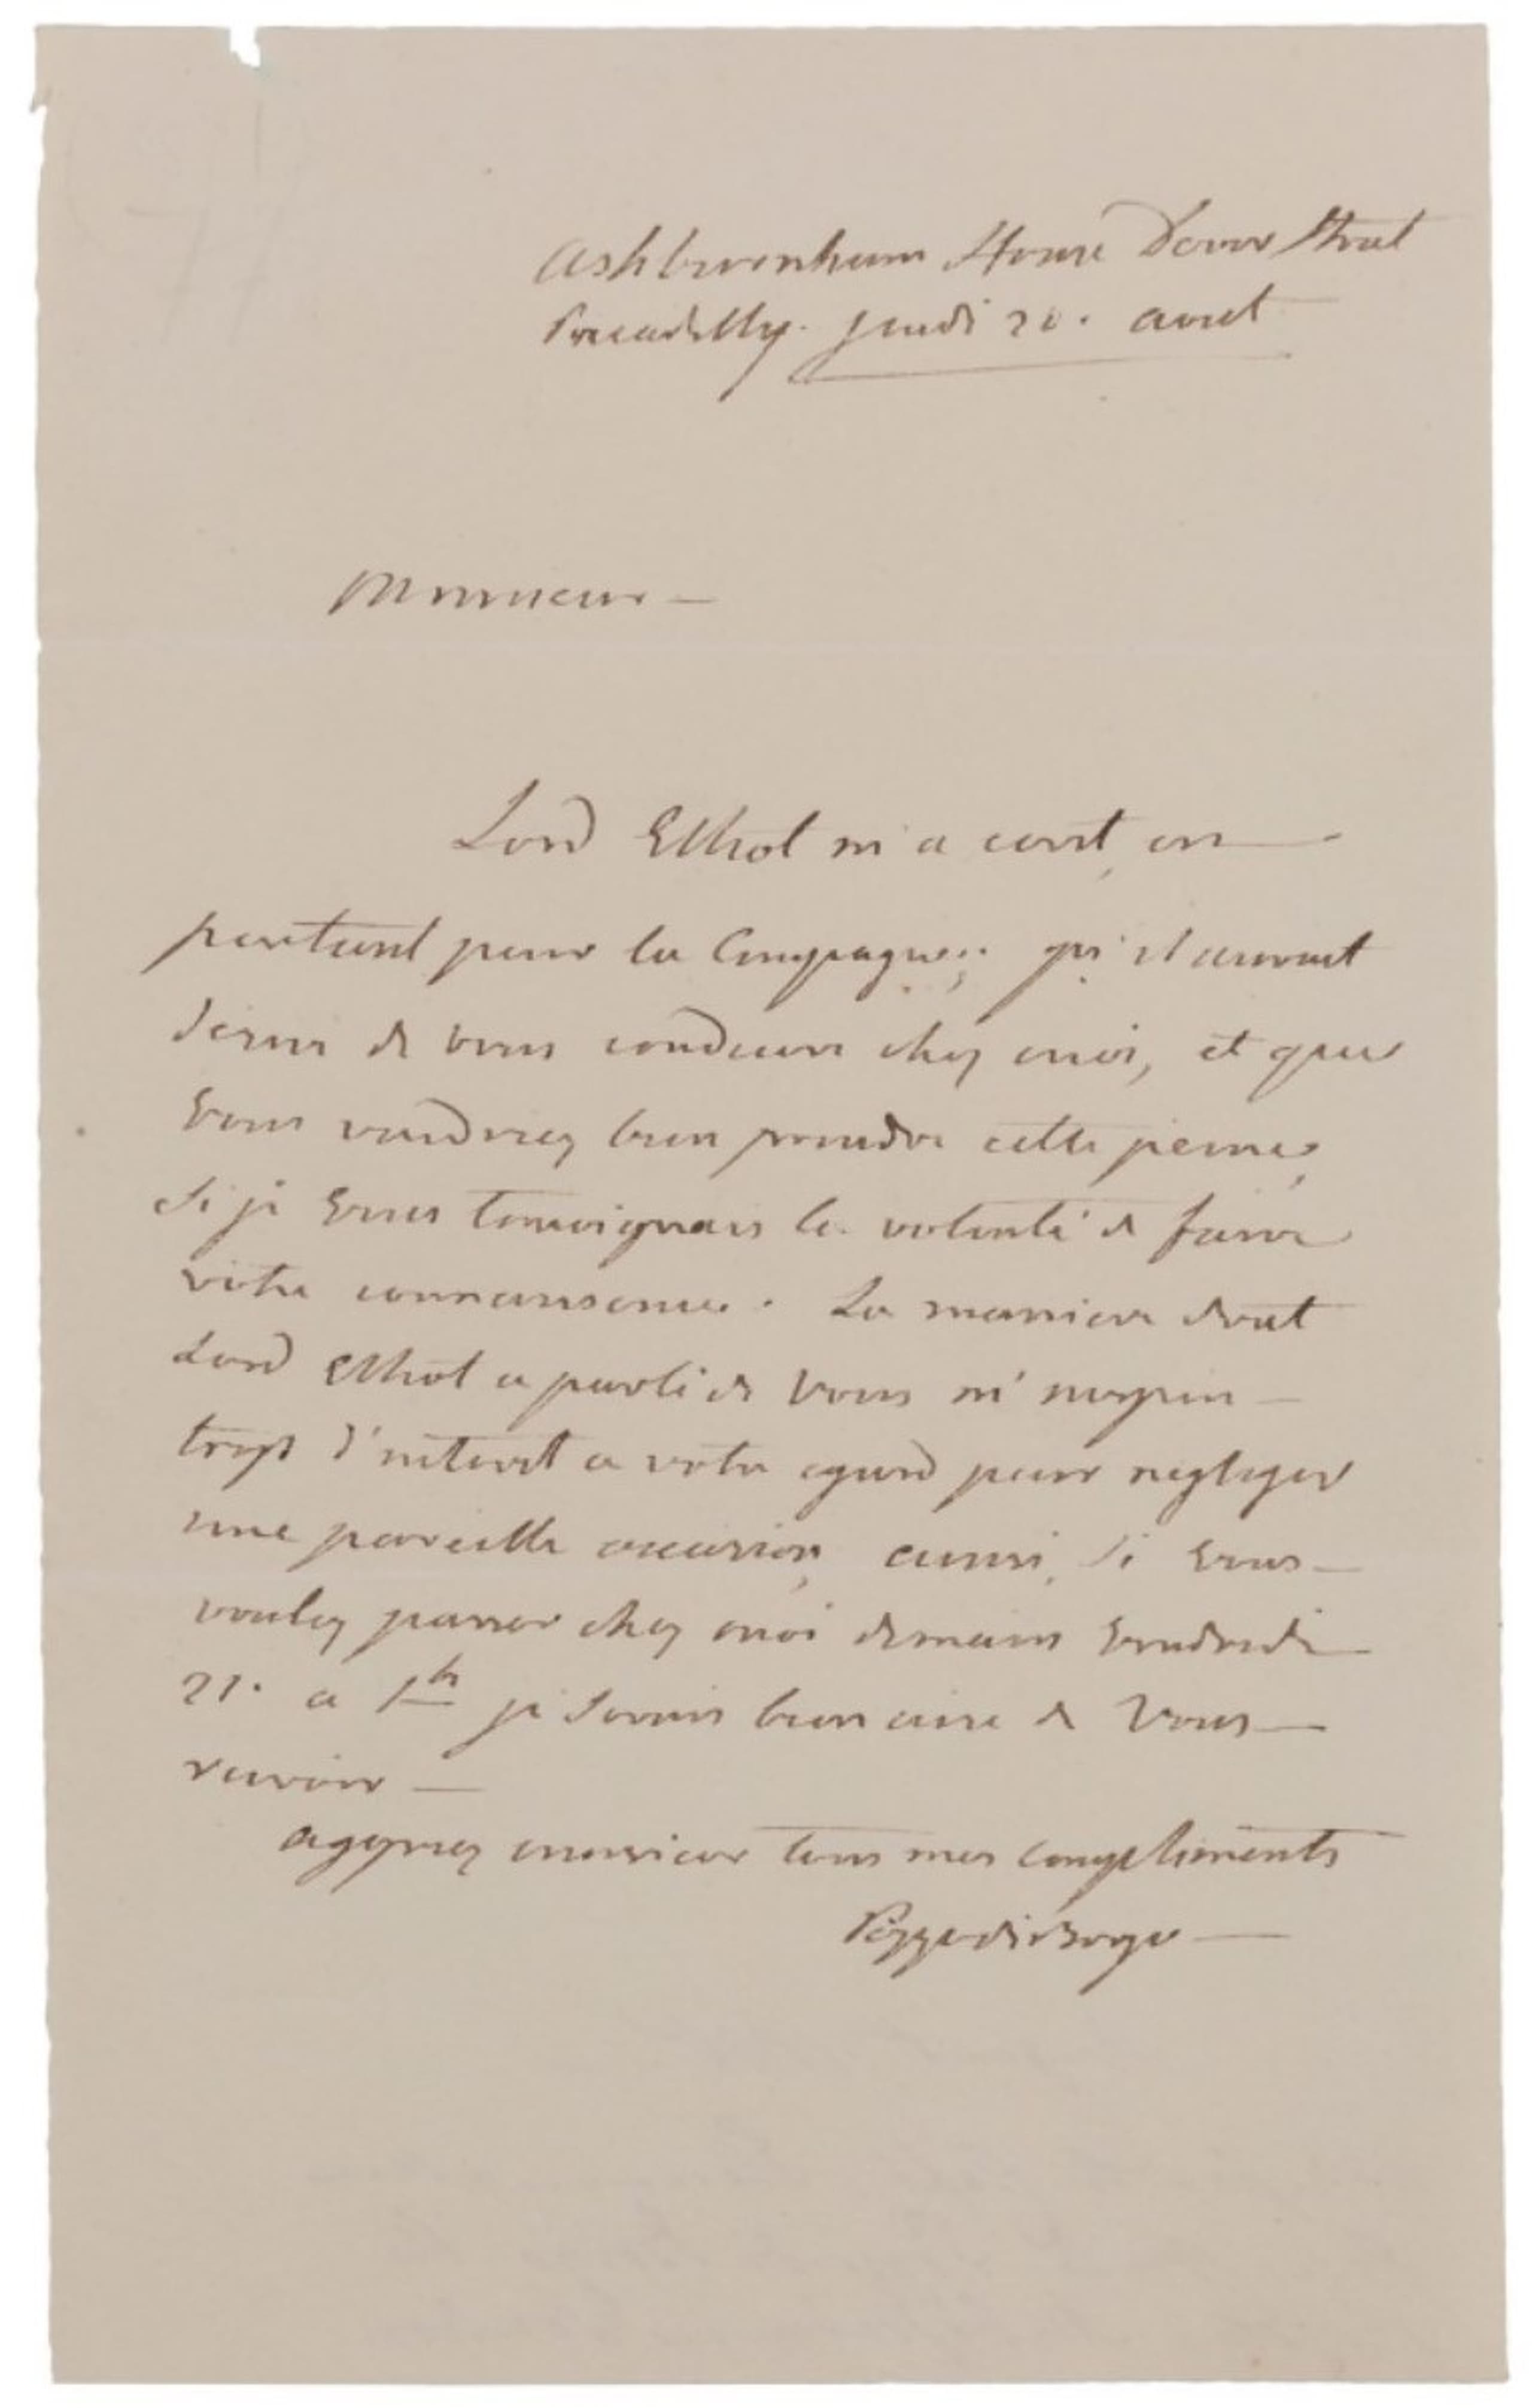 Ashburnham House Dover Street
Piccadilly. Jeudi 20. avril
Monsieur —
Lord Elliot m'a ecrit, en —
partant pour la Campagne; qu'il auroit
desiré de vous conduire chez moi, et que
vous voudriez bien prendre cette peine,
si je vous temoignais la volonté de faire
votre connaissance. La maniere dont
Lord Elliot a parlé de vous m'inspire —
trop d'interet a votre egard pour negliger
une pareille occasion, aussi, si vous —
voulez passer chez moi demain vendredi
21. a 1h je serais bien aise de vous —
recevoir —
agreez monsieur tous mes compliments
Pozzo di Borgo —